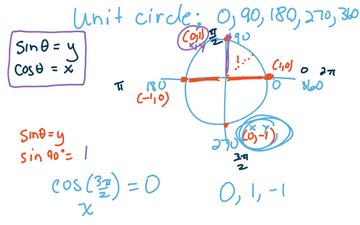 Unit circle: 0, 90, 180, 270, 360
sinθ = y
cosθ = x
(0,1)
x, y
π/2
90
(1,0)
π
180
0
0 2π
360
(-1,0)
x y
(0,-1)
270
3π/2
sinθ = y
sin 90° = 1
cos(3π/2) = 0
x
0, 1, -1